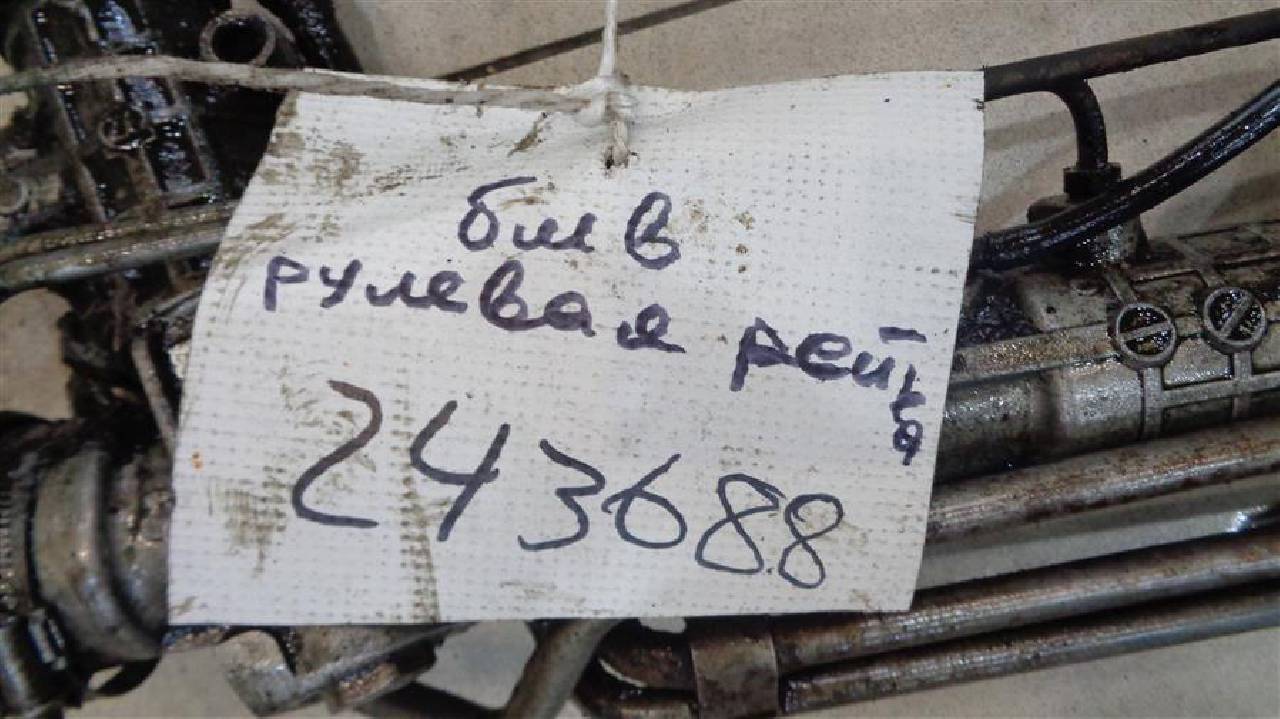 бмв
рулевая рейка
243688